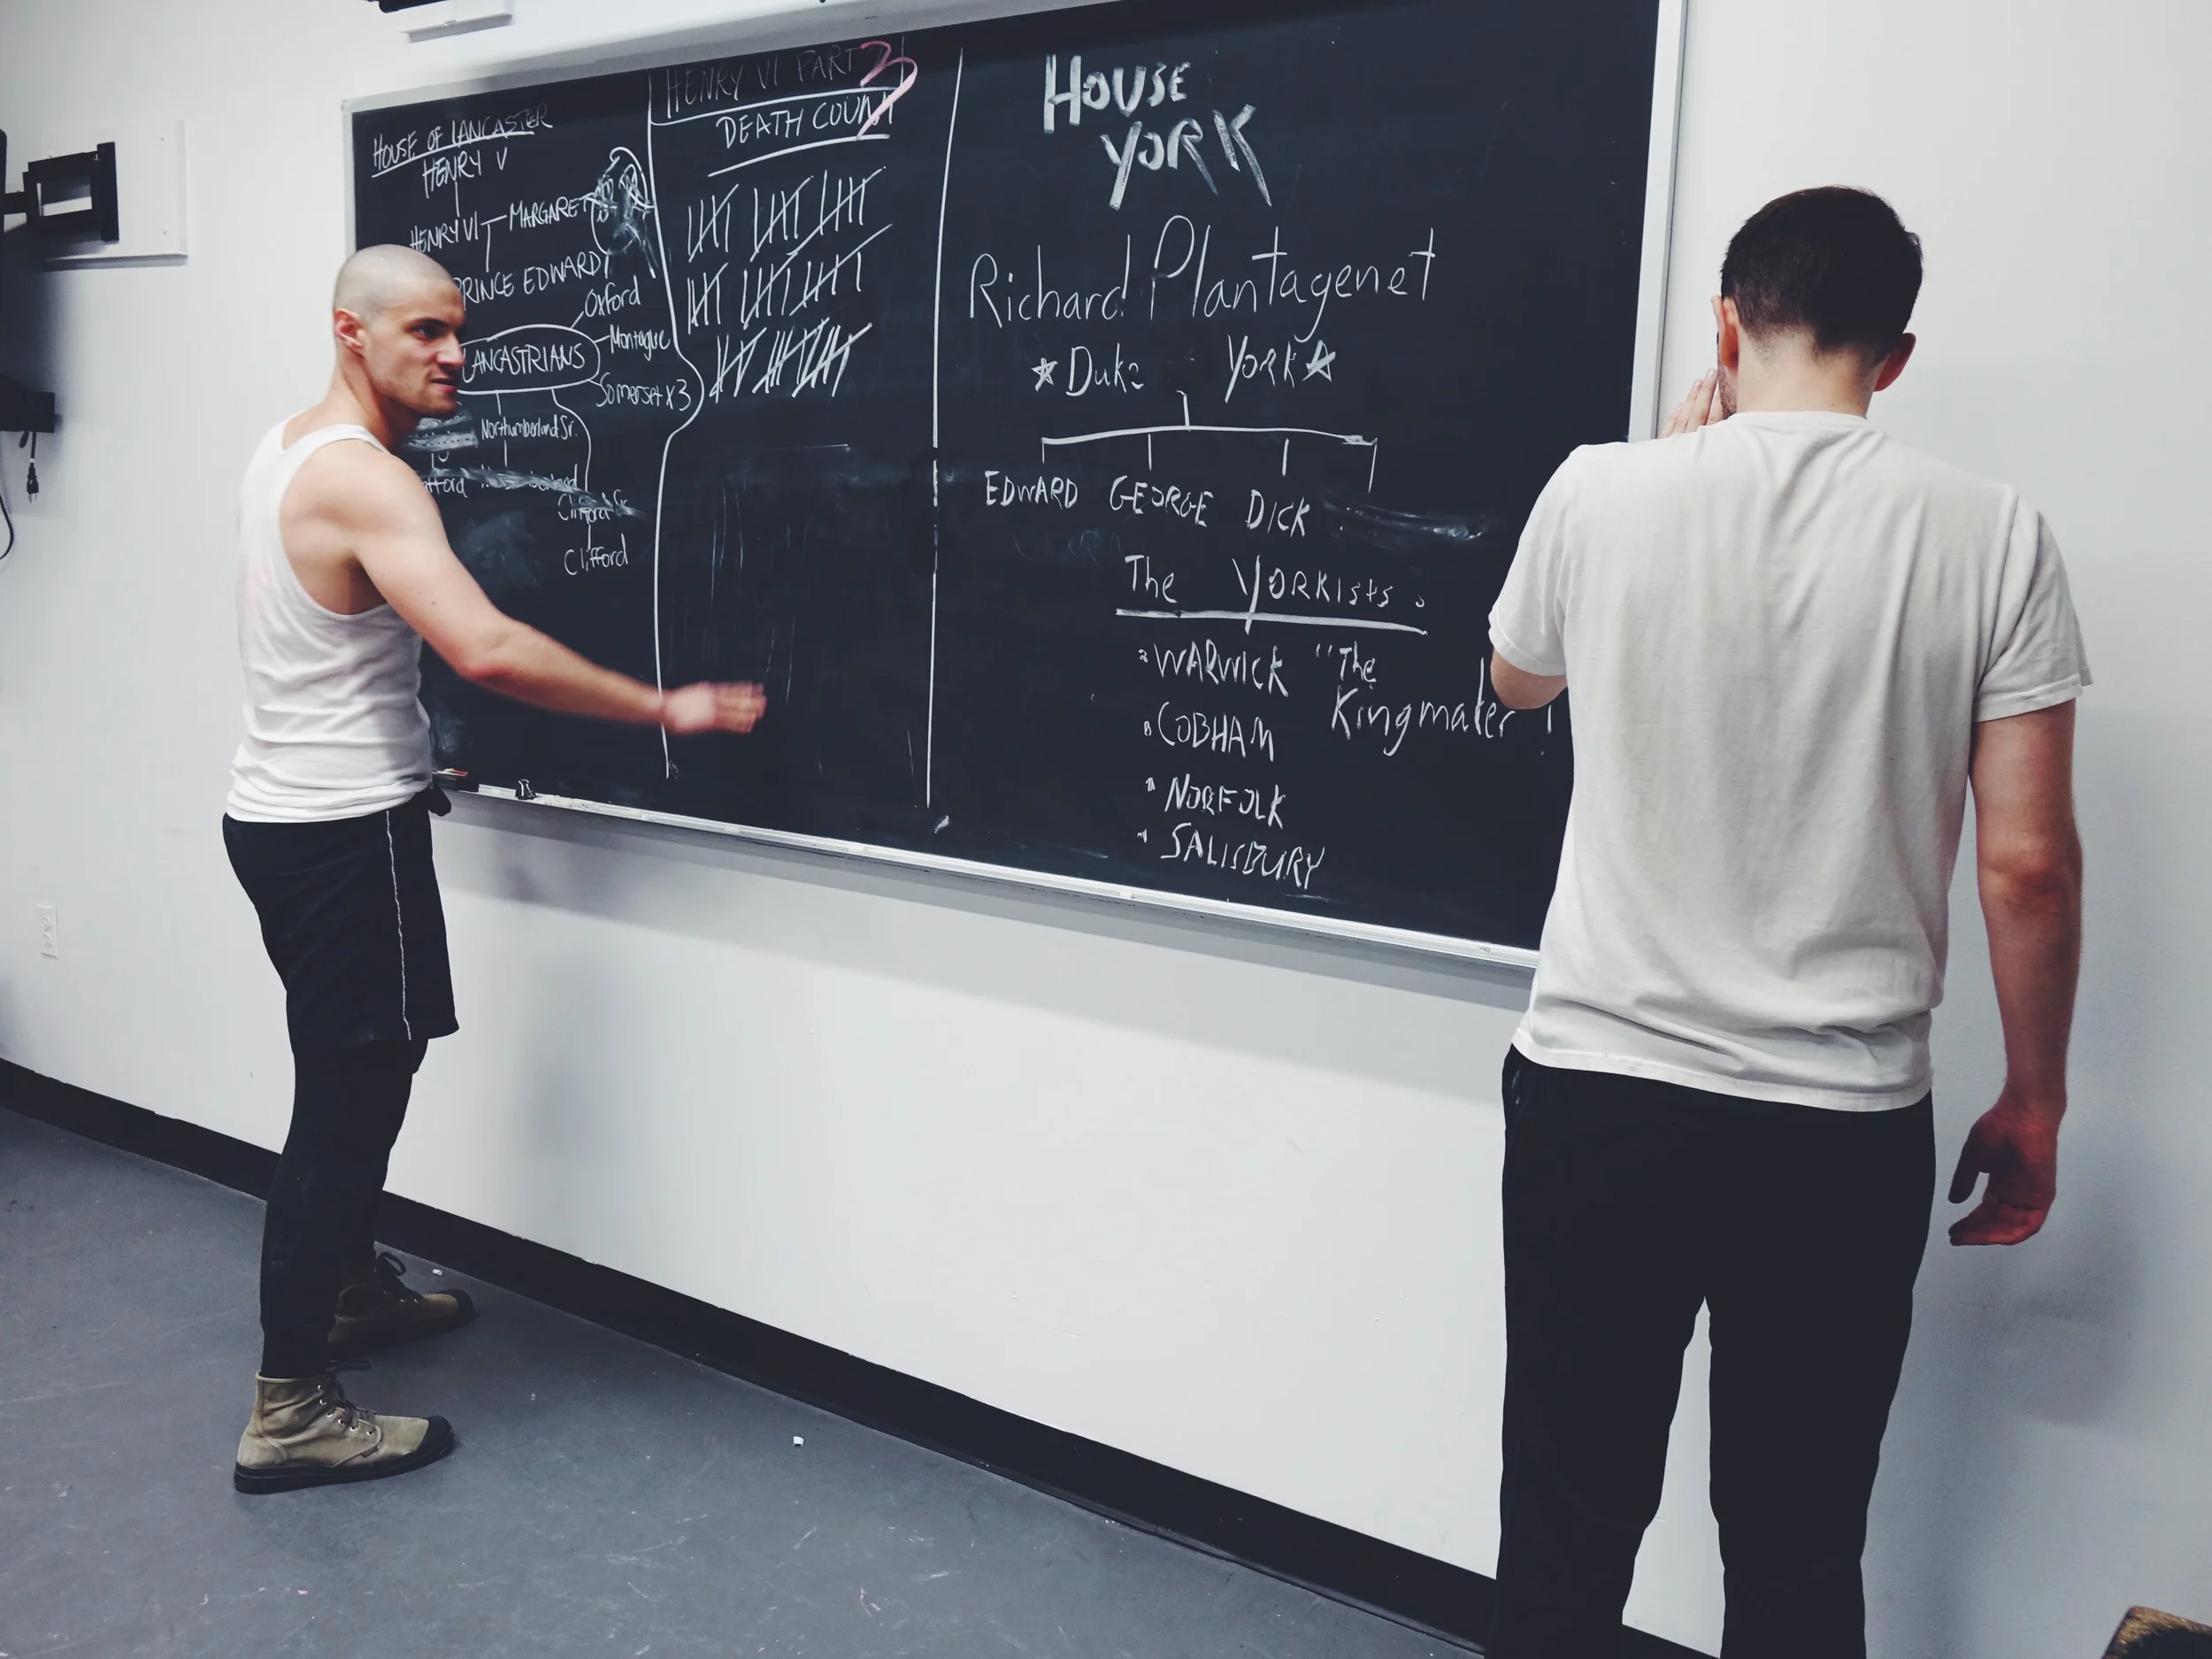 HOUSE OF LANCASTER
HENRY V
HENRY VI MARGARET
PRINCE EDWARD
Oxford
LANCASTRIANS
Montague
Somerset x3
Northumberland Sr.
Clifford Sr.
Clifford
HENRY VI PART 3
DEATH COUNT
HOUSE
YORK
Richard Plantagenet
Duke York
EDWARD GEORGE DICK
The YORKists
WARWICK "The
Kingmaker !
COBHAM
NORFOLK
SALISBURY